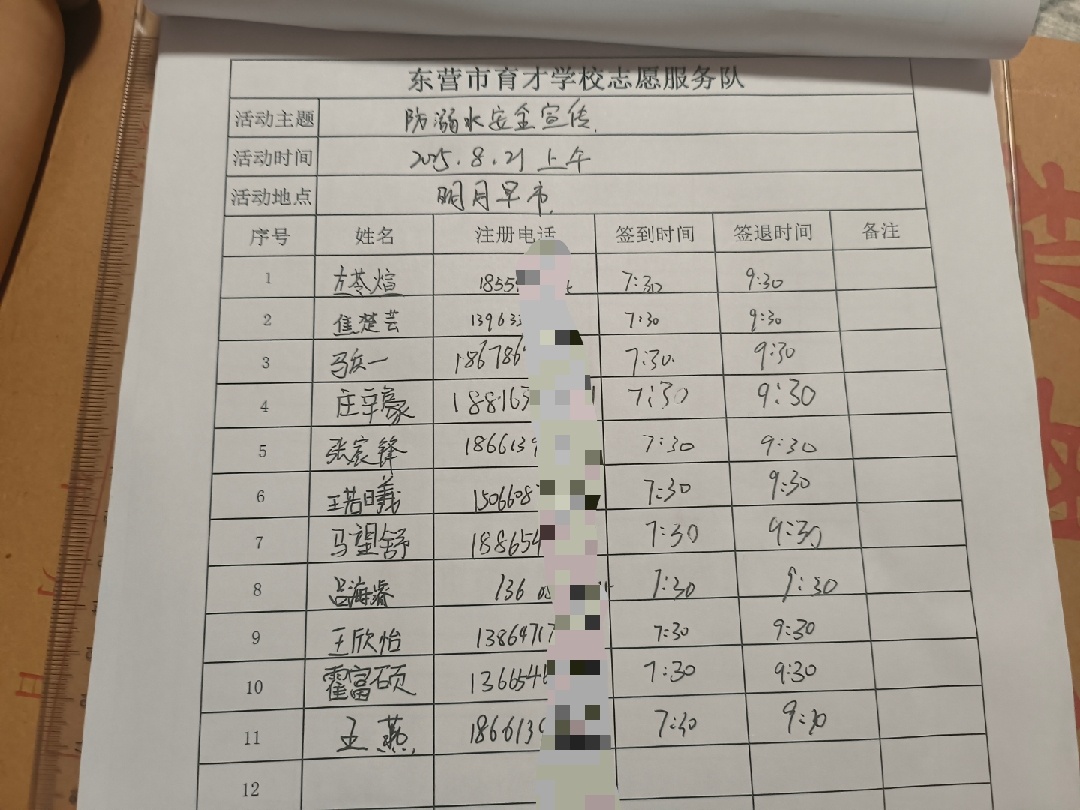 东营市育才学校志愿服务队
活动主题 防溺水安全宣传
活动时间 2025.8.21 上午
活动地点 明月早市
序号 姓名 注册电话 签到时间 签退时间 备注
1 1855 7:30 9:30
2 焦楚芸 13963 7:30 9:30
3 18678 7:30 9:30
4 188163 7:30 9:30
5 张家锋 186613 7:30 9:30
6 王若曦 1506608 7:30 9:30
7 马望舒 188654 7:30 9:30
8 吕海睿 136 7:30 9:30
9 王欣怡 1386471 7:30 9:30
10 霍富硕 136654 7:30 9:30
11 王燕 186613 7:30 9:30
12